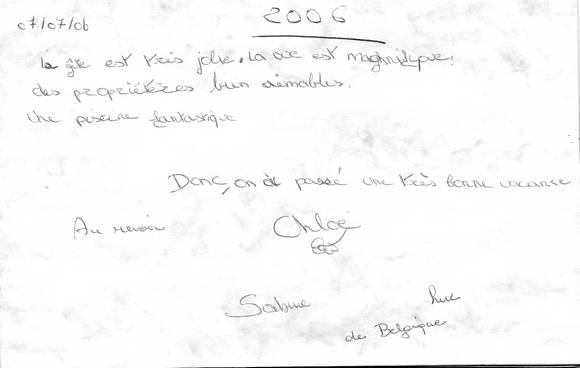 07/07/06
2006
la gîte est très jolie. la vie est magnifique!
des propriétères bien aimables.
Une piscine fantastique
Donc, on à passé une très bonne vacanse
Au revoir
Chloé
Sabine
de Belgique